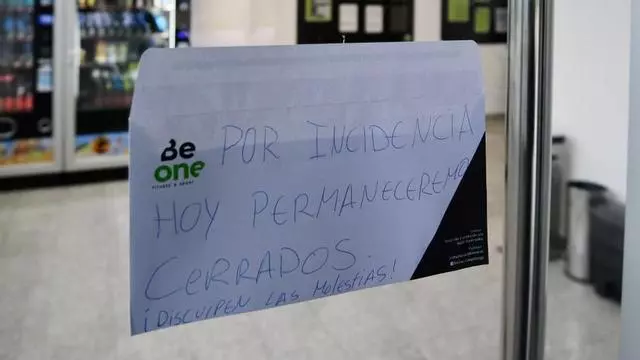 Be
one
FITNESS & SPORT
POR INCIDENCIA
HOY PERMANECEREMOS
CERRADOS.
¡DISCULPEN LAS MOLESTIAS!